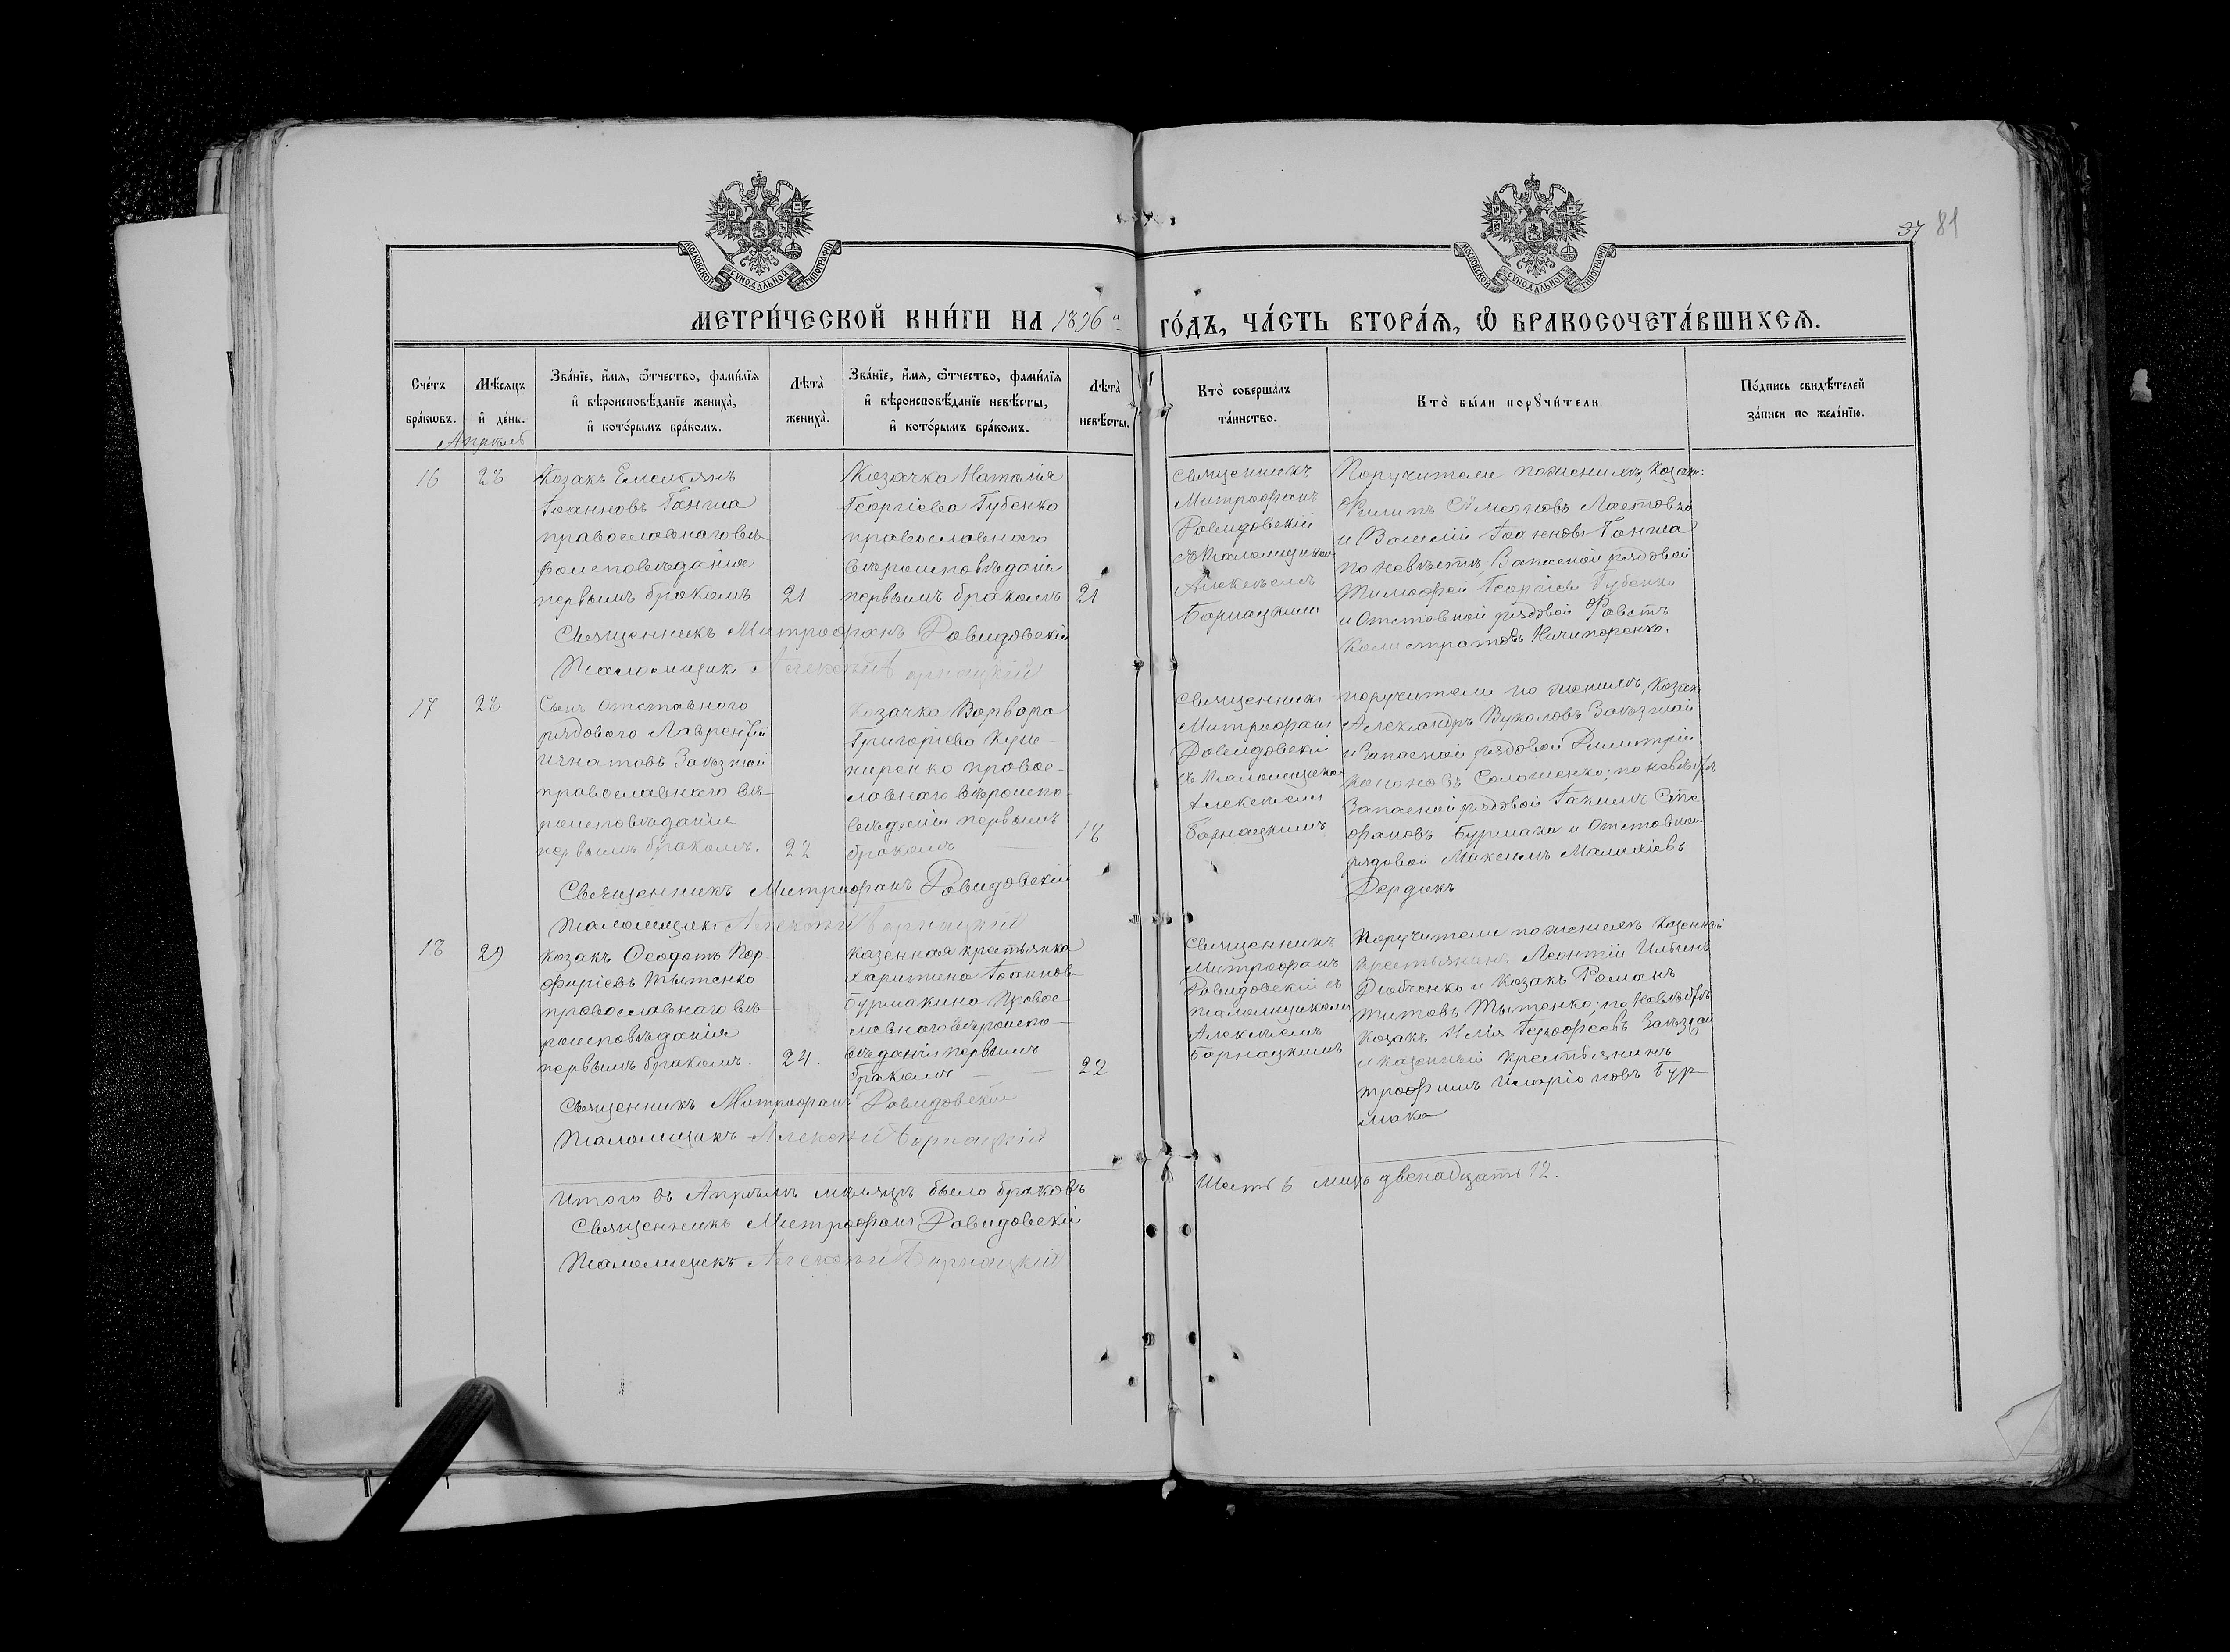 37 81
МОСКОВСКОЙ СѴНОДАЛЬНОЙ ТИПОГРАФІИ
МОСКОВСКОЙ СѴНОДАЛЬНОЙ ТИПОГРАФІИ
МЕТРИ́ЧЕСКОЙ КНИ́ГИ НА 1896 ГО́ДЪ, ЧА́СТЬ ВТОРА́Ѧ, Ѽ БРАКОСОЧЕТА́ВШИХСѦ.
Сче́тъ
бра́кѡвъ.
Мѣ́сяцъ
и҆ де́нь.
Апрель
Зва́нїе, и҆́мя, ѻ҆́тчество, фами́лїя
и҆ вѣроисповѣ́данїе жениха̀,
и҆ кото́рымъ бра́комъ.
Лѣта̀
жениха̀.
Зва́нїе, и҆́мя, ѻ҆́тчество, фами́лїя
и҆ вѣроисповѣ́данїе невѣ́сты,
и҆ кото́рымъ бра́комъ.
Лѣта̀
невѣ́сты.
Кто̀ соверша́лъ
та́инство.
Кто̀ бы́ли порꙋчи́тели.
По́дпись свидѣ́телей
за́писи по жела́нїю.
16
28
Козакъ Емельянъ
Іоанновъ Ганжа
православнаго вѣ-
роисповѣданія
первымъ бракомъ
21
Козачка Наталія
Георгіева Губенко
православнаго
вѣроисповѣданія
первымъ бракомъ
21
Священникъ
Митрофанъ
Давидовскій
съ Псаломщикомъ
Алексѣемъ
Барнацкимъ
Поручители по женихѣ, Козаки:
Филипъ Симеоновъ Ластовка
и Василій Іоанновъ Ганжа
по невѣстѣ, Запасной рядовой
Тимофей Георгіевъ Губенко
и Отставной рядовой Фавстъ
Калистратовъ Ничипоренко.
Священникъ Митрофанъ Давидовскій
Псаломщикъ Алексѣй Барнацкій
17
28
Сынъ отставного
рядового Лаврентій
Игнатовъ Заѣзжай
православнаго вѣ-
роисповѣданія
первымъ бракомъ.
22
Козачка Варвара
Григоріева
православнаго вѣроиспо-
вѣданія первымъ
бракомъ
18
Священникъ
Митрофанъ
Давидовскій
съ Псаломщикомъ
Алексѣемъ
Барнацкимъ
поручители по женихѣ, Козакъ
Александръ Вуколовъ Заѣзжай
и Запасной рядовой Димитрій
Кононовъ Солошенко; по невѣстѣ
Запасной рядовой Іакимъ Сте-
фановъ Бурмака и Отставной
рядовой Максимъ Малахіевъ
Священникъ Митрофанъ Давидовскій
Псаломщикъ Алексѣй Барнацкій
18
29
Козакъ Ѳеодотъ Пор-
фиріевъ Тытенко
православнаго вѣ-
роисповѣданія
первымъ бракомъ.
24.
Казенная крестьянка
Харитина Іоаннова
Бурмакина Правос-
лавнаго вѣроиспо-
вѣданія первымъ
бракомъ
22
Священникъ
Митрофанъ
Давидовскій съ
псаломщикомъ
Алексѣемъ
Барнацкимъ
Поручители по женихѣ Казенный
крестьянинъ Леонтій Ильинъ
и Козакъ Романъ
Титовъ Тытенко; по Невѣстѣ
Козакъ Илія Заѣзжай
и казенный крестьянинъ
Трофимъ Иларіоновъ Бур-
мака
Священникъ Митрофанъ Давидовскій
Псаломщикъ Алексѣй Барнацкій
Итого въ Апрѣлѣ мѣсяцѣ было браковъ Шесть 6 лицъ двенадцать 12.
Священникъ Митрофанъ Давидовскій
Псаломщикъ Алексѣй Барнацкій